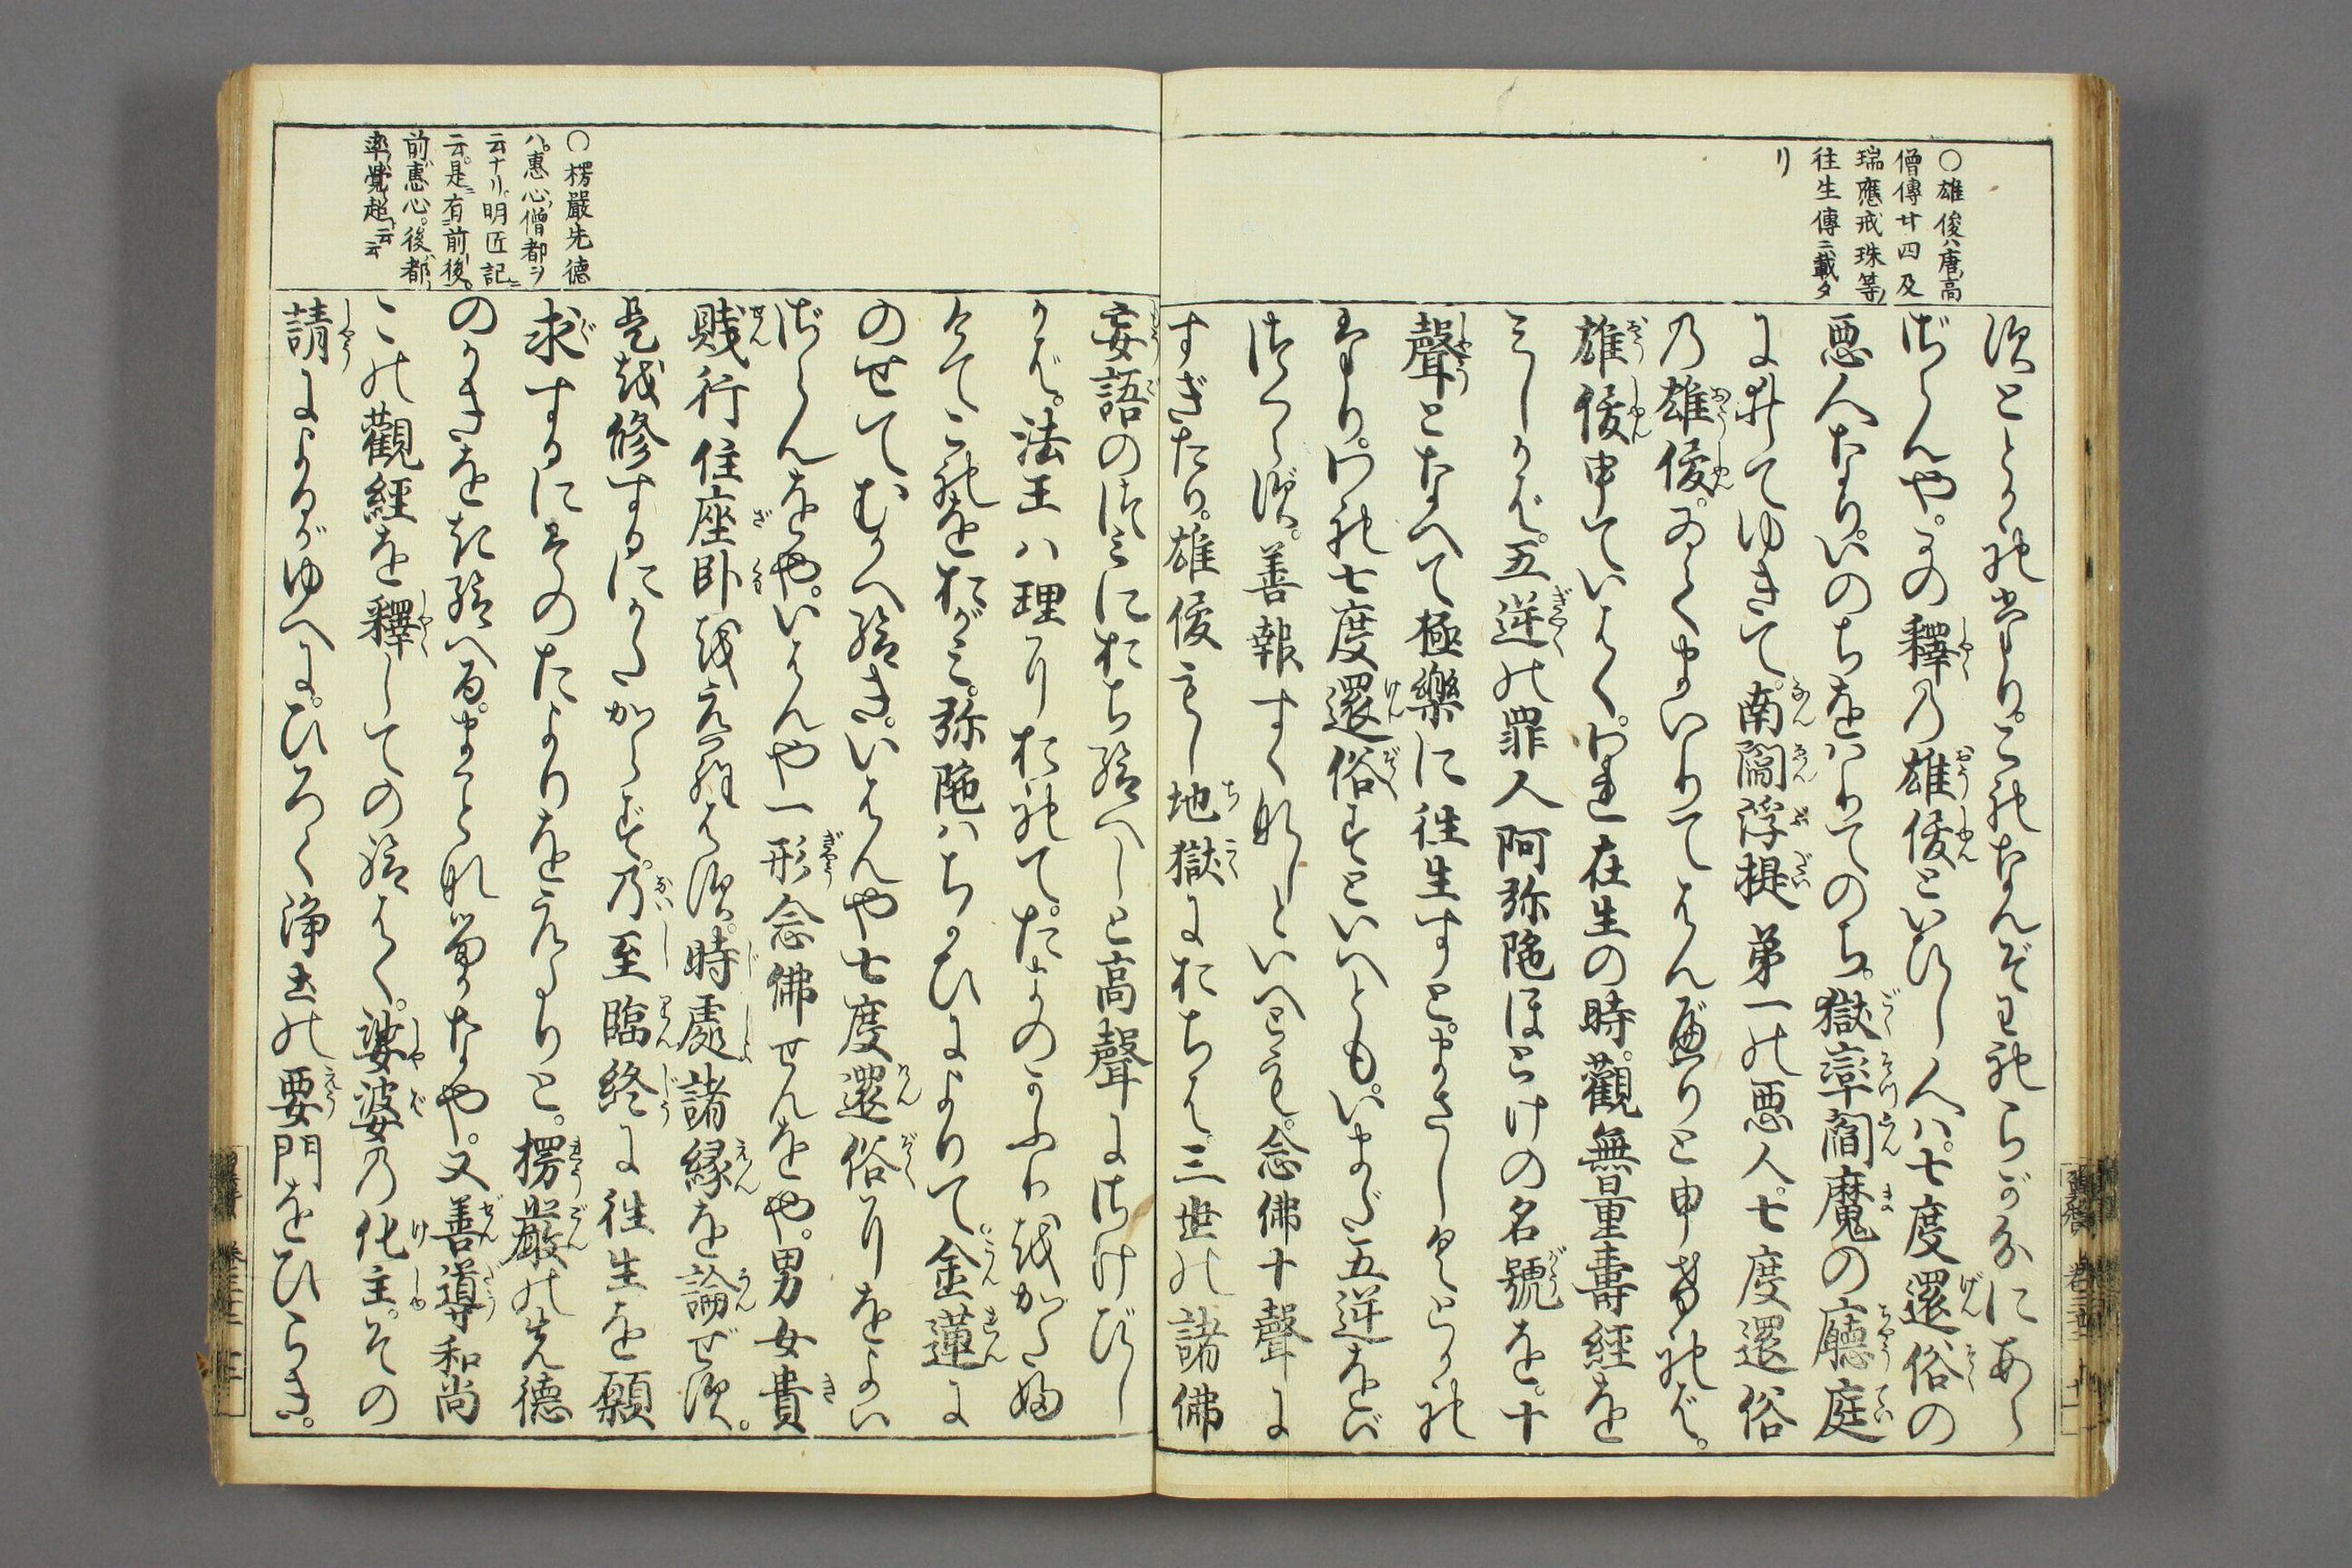 ○雄俊ハ唐高
僧傳廿四及
瑞應戒珠等ノ
往生傳ニ載タ
リ
ずととかれたり。これなんぞわれらが分にあら
ざらんや。かの釋の雄俊といひし人ハ。七度還俗の
悪人なり。いのちをハりてのち。獄率閻魔の廳庭
に井てゆきて。南閻浮提第一の悪人。七度還俗
の雄俊。ゐてまいりてはん𛂞りと申ければ。
雄俊申ていはく。われ在生の時。觀無量壽經を
みしかば。五逆の罪人阿弥陀ほとけの名號を。十
聲となへて極樂に往生すと。まさしくとかれ
たり。われ七度還俗すといへとも。いまだ五逆をバ
つくらず。善報すくなしといへども。念佛十聲に
すぎたり。雄俊もし地獄におちば。三世の諸佛
妄語のつミにおち給へしと高聲にさけびし
かば。法王ハ理におれて。たまのかふりをかたぶ
けてこれをおがミ。弥陀ハちかひによりて。金蓮に
のせてむかへ給き。いはんや七度還俗におよバ
ざらんをや。いはんや一形念佛せんをや。男女貴
賤行住座卧をえらばず。時處諸縁を論ぜず。
是を修するにかたからず。乃至臨終に往生を願
求するにそのたよりをえたりと。楞嚴の先徳
のかきをき給へる。まことなるかなや。又善導和尚
この觀經を釋しての給はく。娑婆の化主。その
請によるがゆへに。ひろく浄土の要門をひらき。
○楞嚴先德
ハ。惠心ノ僧都ヲ
云ナリ。明匠記ニ
云。是ニ有リ前後。
前ハ惠心。後ハ都
率ノ覺超ト云云